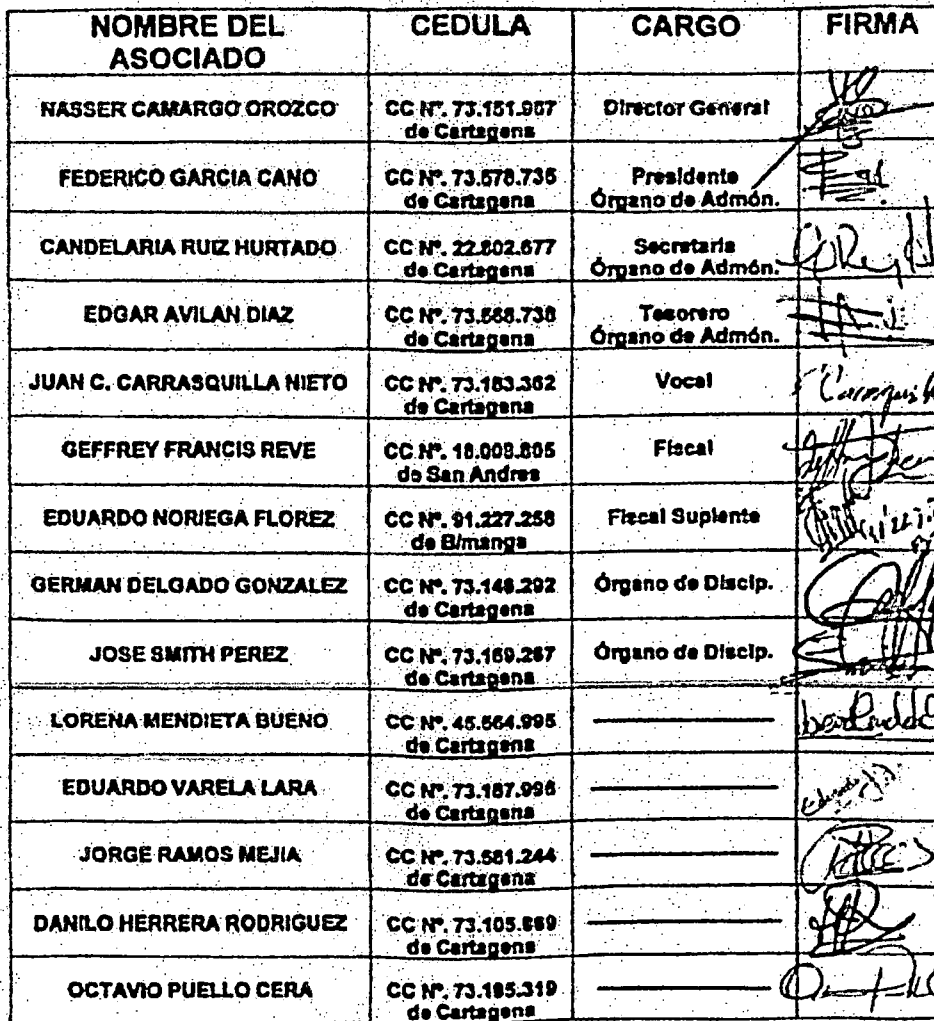 NOMBRE DEL ASOCIADO CEDULA CARGO FIRMA
NASSER CAMARGO OROZCO CC Nº. 73.151.967 de Cartagena Director General
FEDERICO GARCIA CANO CC Nº. 73.578.735 de Cartagena Presidente Órgano de Admón.
CANDELARIA RUIZ HURTADO CC Nº. 22.802.677 de Cartagena Secretaria Órgano de Admón.
EDGAR AVILAN DIAZ CC Nº. 73.568.738 de Cartagena Tesorero Órgano de Admón.
JUAN C. CARRASQUILLA NIETO CC Nº. 73.183.362 de Cartagena Vocal
GEFFREY FRANCIS REVE CC Nº. 18.008.805 de San Andres Fiscal
EDUARDO NORIEGA FLOREZ CC Nº. 91.227.258 de B/manga Fiscal Suplente
GERMAN DELGADO GONZALEZ CC Nº. 73.148.292 de Cartagena Órgano de Discip.
JOSE SMITH PEREZ CC Nº. 73.169.267 de Cartagena Órgano de Discip.
LORENA MENDIETA BUENO CC Nº. 45.564.995 de Cartagena
EDUARDO VARELA LARA CC Nº. 73.187.996 de Cartagena
JORGE RAMOS MEJIA CC Nº. 73.581.244 de Cartagena
DANILO HERRERA RODRIGUEZ CC Nº. 73.105.869 de Cartagena
OCTAVIO PUELLO CERA CC Nº. 73.195.319 de Cartagena